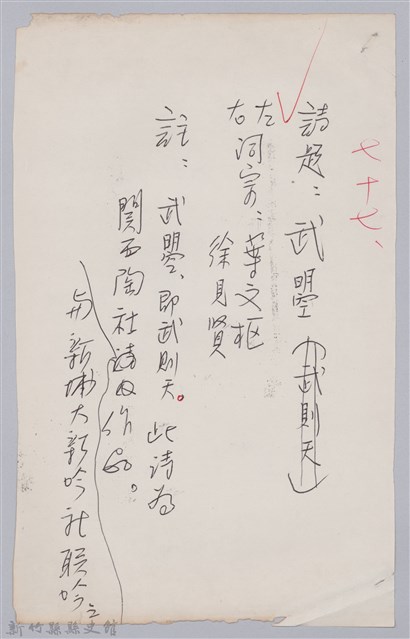 七十七、
詩題：武曌（武則天）
左
右詞宗：葉文樞
徐見賢
註：武曌、即武則天。此詩為
關西陶社詩友作品。
與新埔大新吟社联吟之
新竹縣縣史館